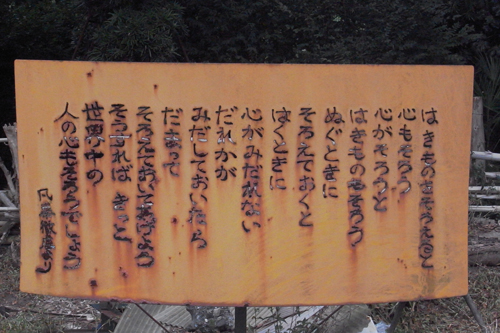 はきものをそろえると
心もそろう
心がそろうと
はきものもそろう
ぬぐときに
そろえておくと
はくときに
心がみだれない
だれかが
みだしておいたら
だまって
そろえておいてあげよう
そうすれば きっと
世界中の
人の心もそろうでしょう